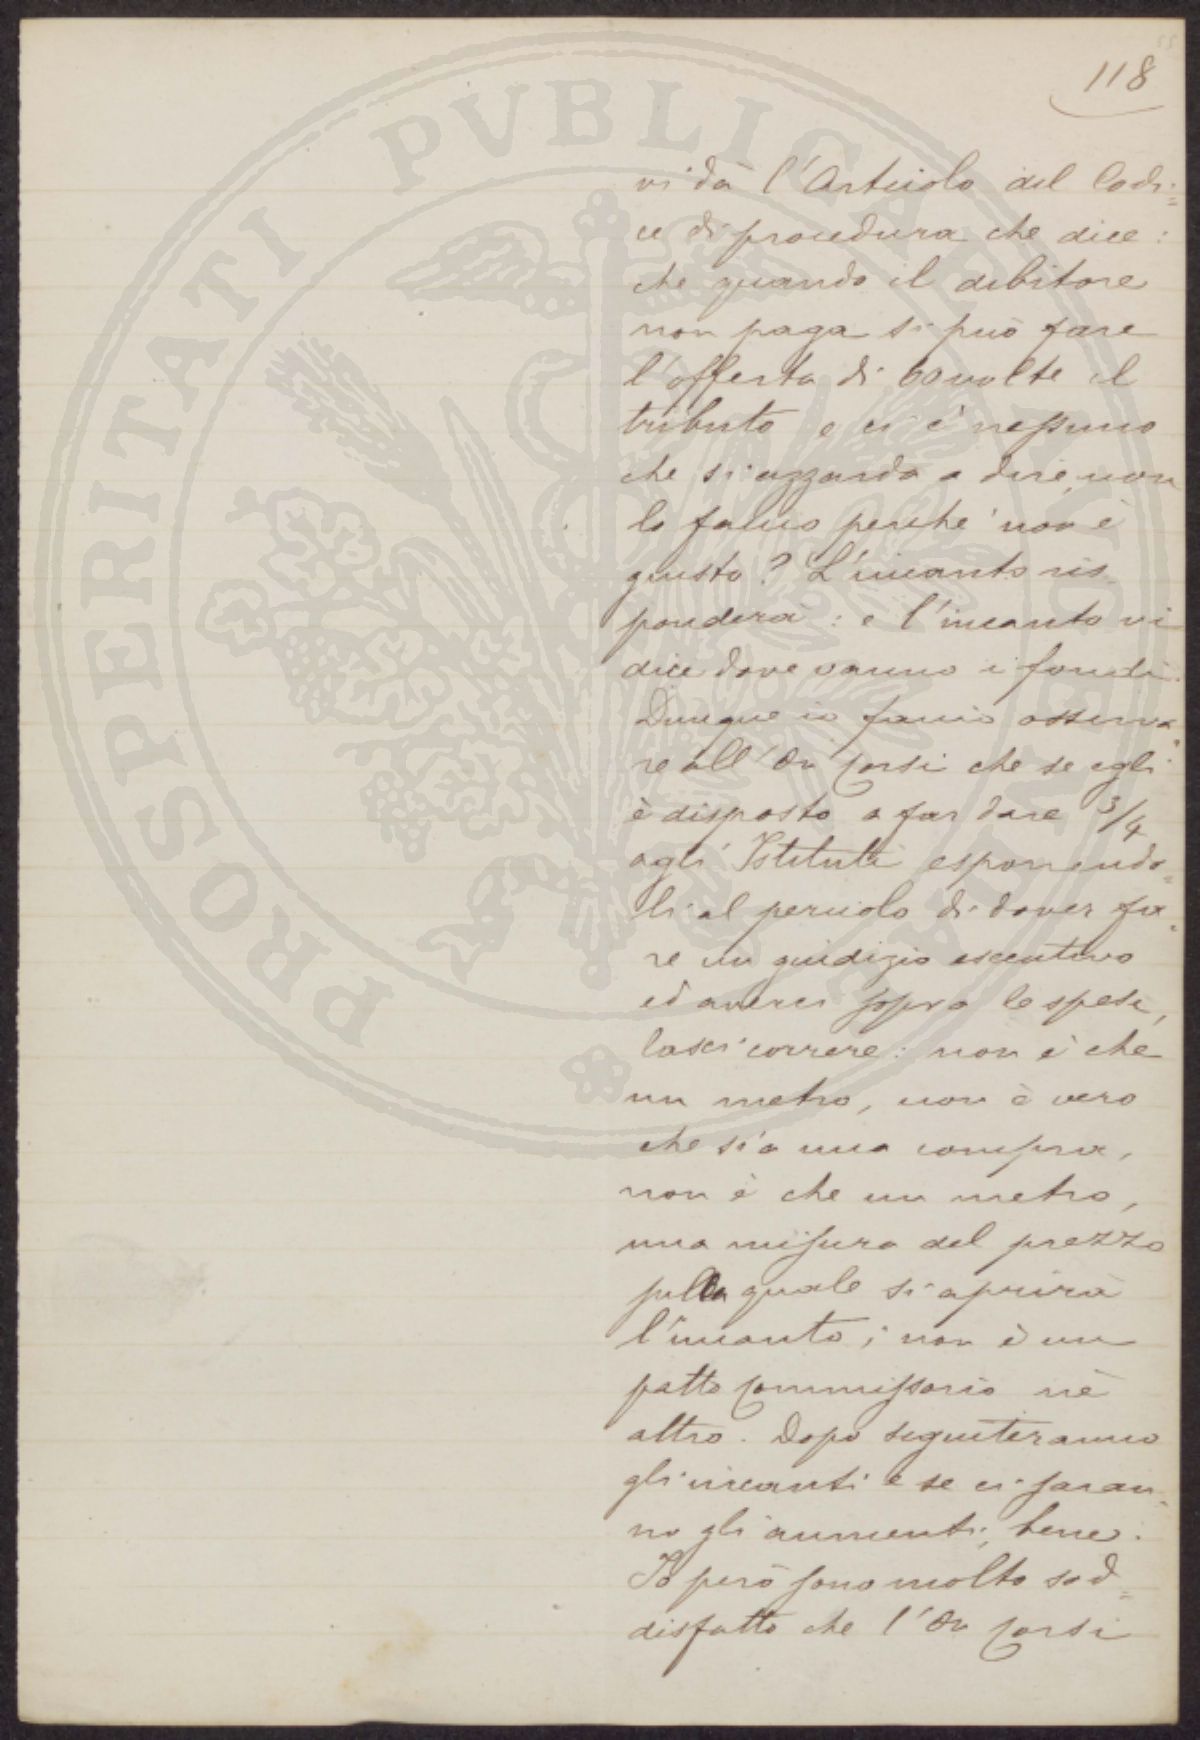 118
vi dà l'Articolo del Codi=
ce di procedura che dice:
che quando il debitore
non paga si può fare
l'offerta di 60 volte il
tributo e ci è nessuno
che si azzarda a dire, non
lo faccio perché non è
giusto? L'incanto ris
ponderà: e l'incanto vi
dice dove vanno i fondi.
Dunque io faccio osserva=
re all'On Corsi che se egli
è disposto a far dare 3/4
agli Istituti esponendo=
li al pericolo di dover fa=
re un giudizio esecutivo
ed averci sopra le spese,
lasci correre: non è che
un metro, non è vero
che sia una compra,
non è che un metro,
una misura del prezzo
sulla quale si aprirà
l'incanto; non è un
patto commissorio nè
altro. Dopo seguiteranno
gli incanti e se ci saran=
no gli aumenti, bene.
Io però sono molto sod=
disfatto che l'On Corsi
PROSPERITATI PVBLICAE